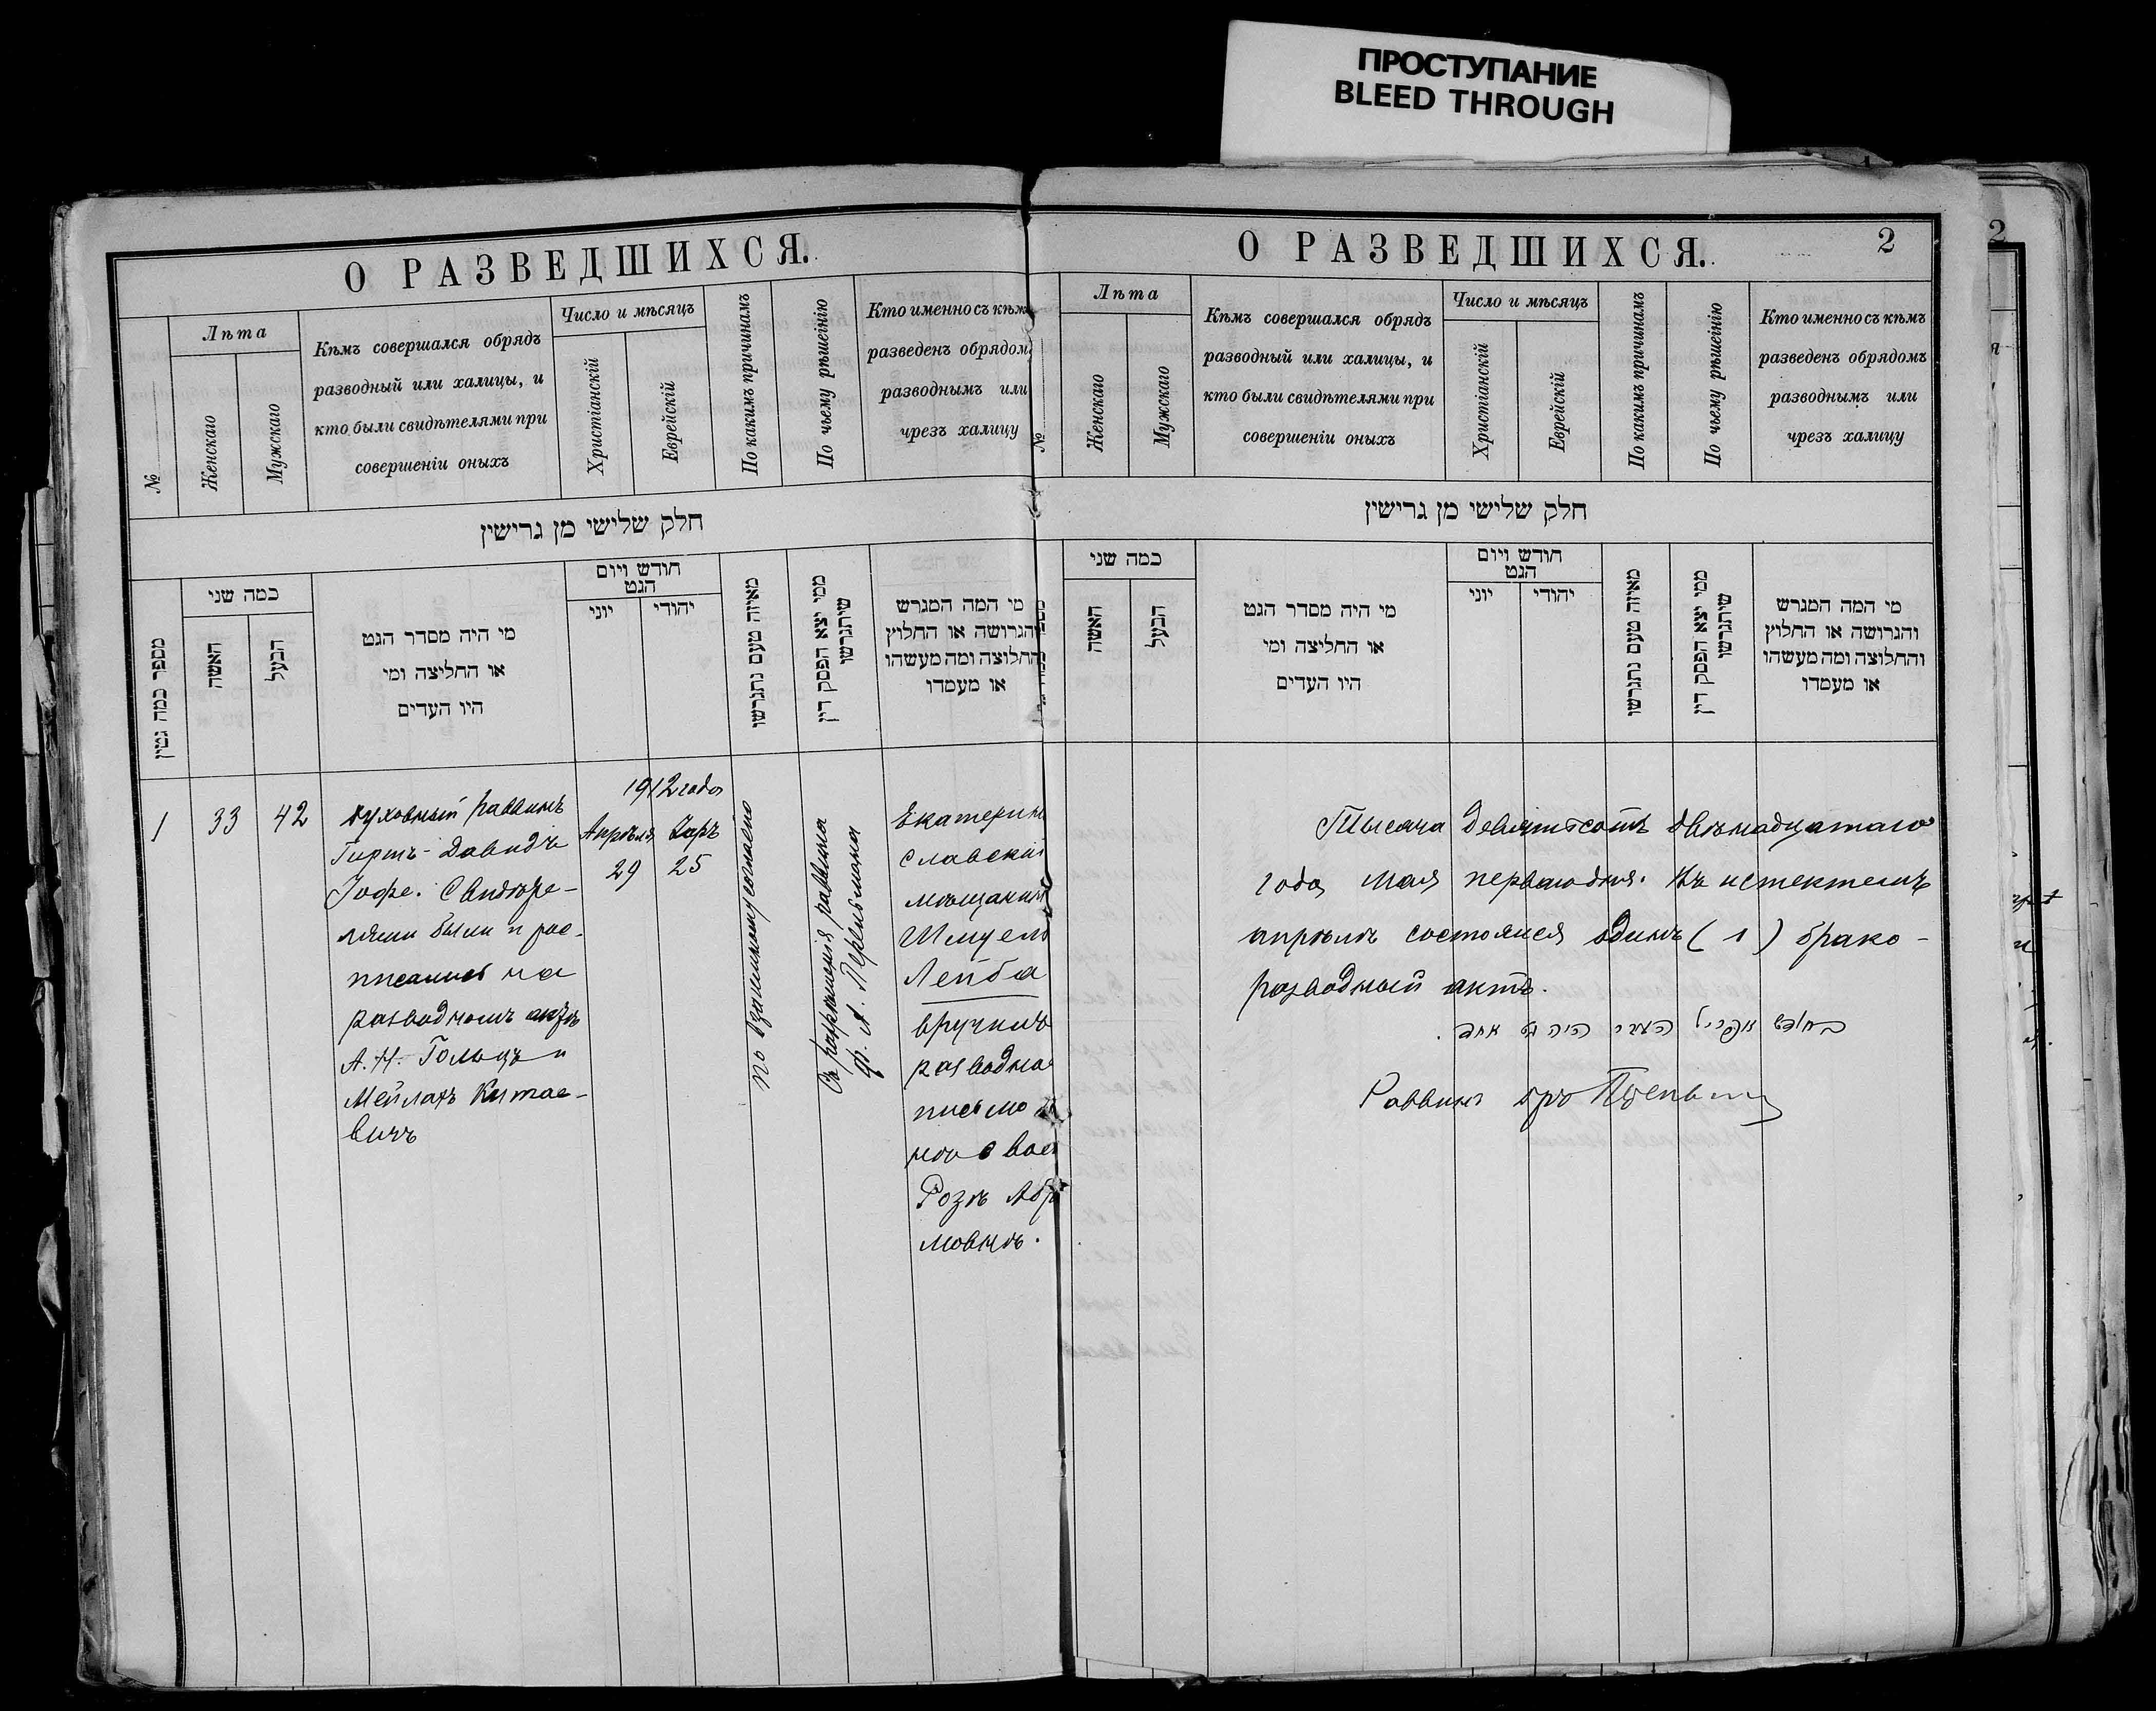 ПРОСТУПАНИЕ
BLEED THROUGH
О РАЗВЕДШИХСЯ.
№
Лѣта
Женскаго
Мужскаго
Кѣмъ совершался обрядъ
разводный или халицы, и
кто были свидѣтелями при
совершеніи оныхъ
Число и мѣсяцъ
Христіанскій
Еврейскій
По какимъ причинамъ
По чьему рѣшенію
Кто именно съ кѣмъ
разведенъ обрядом
разводнымъ или
чрезъ халицу
חלק שלישי מן גרישין
מספר כמה גטין
כמה שני
האשה
הבעל
מי היה מסדר הגט
או החליצה ומי
היו העדים
חודש ויום
הגט
יוני
יהודי
מאיזה טעם נתגרשו
ממי יצא הפסק דין
שיתגרשו
מי המה המגרש
והגרושה או החלוץ
והחלוצה ומה מעשהו
או מעמדו
1
33
42
Духовный раввинъ
Гиршъ-Давидъ
Іофе. Свидѣте-
лями были и рос-
писались на
разводномъ актѣ
А. Н. Гольцъ и
Мейлахъ Китае-
вичъ
1912 года
Апрѣля
29
Іаръ
25
По взаимному согласію
Съ разрѣшенія раввина
Ф. А. Перельмана
Екатерино
славскій
мѣщанин
Шмуель
Лейба
вручилъ
разводное
письмо
женѣ своей
Розѣ Абр
мовнѣ.
О РАЗВЕДШИХСЯ.
2
№
Лѣта
Женскаго
Мужскаго
Кѣмъ совершался обрядъ
разводный или халицы, и
кто были свидѣтелями при
совершеніи оныхъ
Число и мѣсяцъ
Христіанскій
Еврейскій
По какимъ причинамъ
По чьему рѣшенію
Кто именно съ кѣмъ
разведенъ обрядомъ
разводнымъ или
чрезъ халицу
חלק שלישי מן גרישין
כמה שני
האשה
הבעל
מי היה מסדר הגט
או החליצה ומי
היו העדים
חודש ויום
הגט
יוני
יהודי
מאיזה טעם נתגרשו
ממי יצא הפסק דין
שיתגרשו
מי המה המגרש
והגרושה או החלוץ
והחלוצה ומה מעשהו
או מעמדו
Тысяча девятьсотъ двѣнадцатаго
года мая перваго дня. Въ истекшемъ
апрѣлѣ состоялся одинъ (1) брако-
разводный актъ.
בחודש אפריל היה גט אחד.
Раввинъ
2